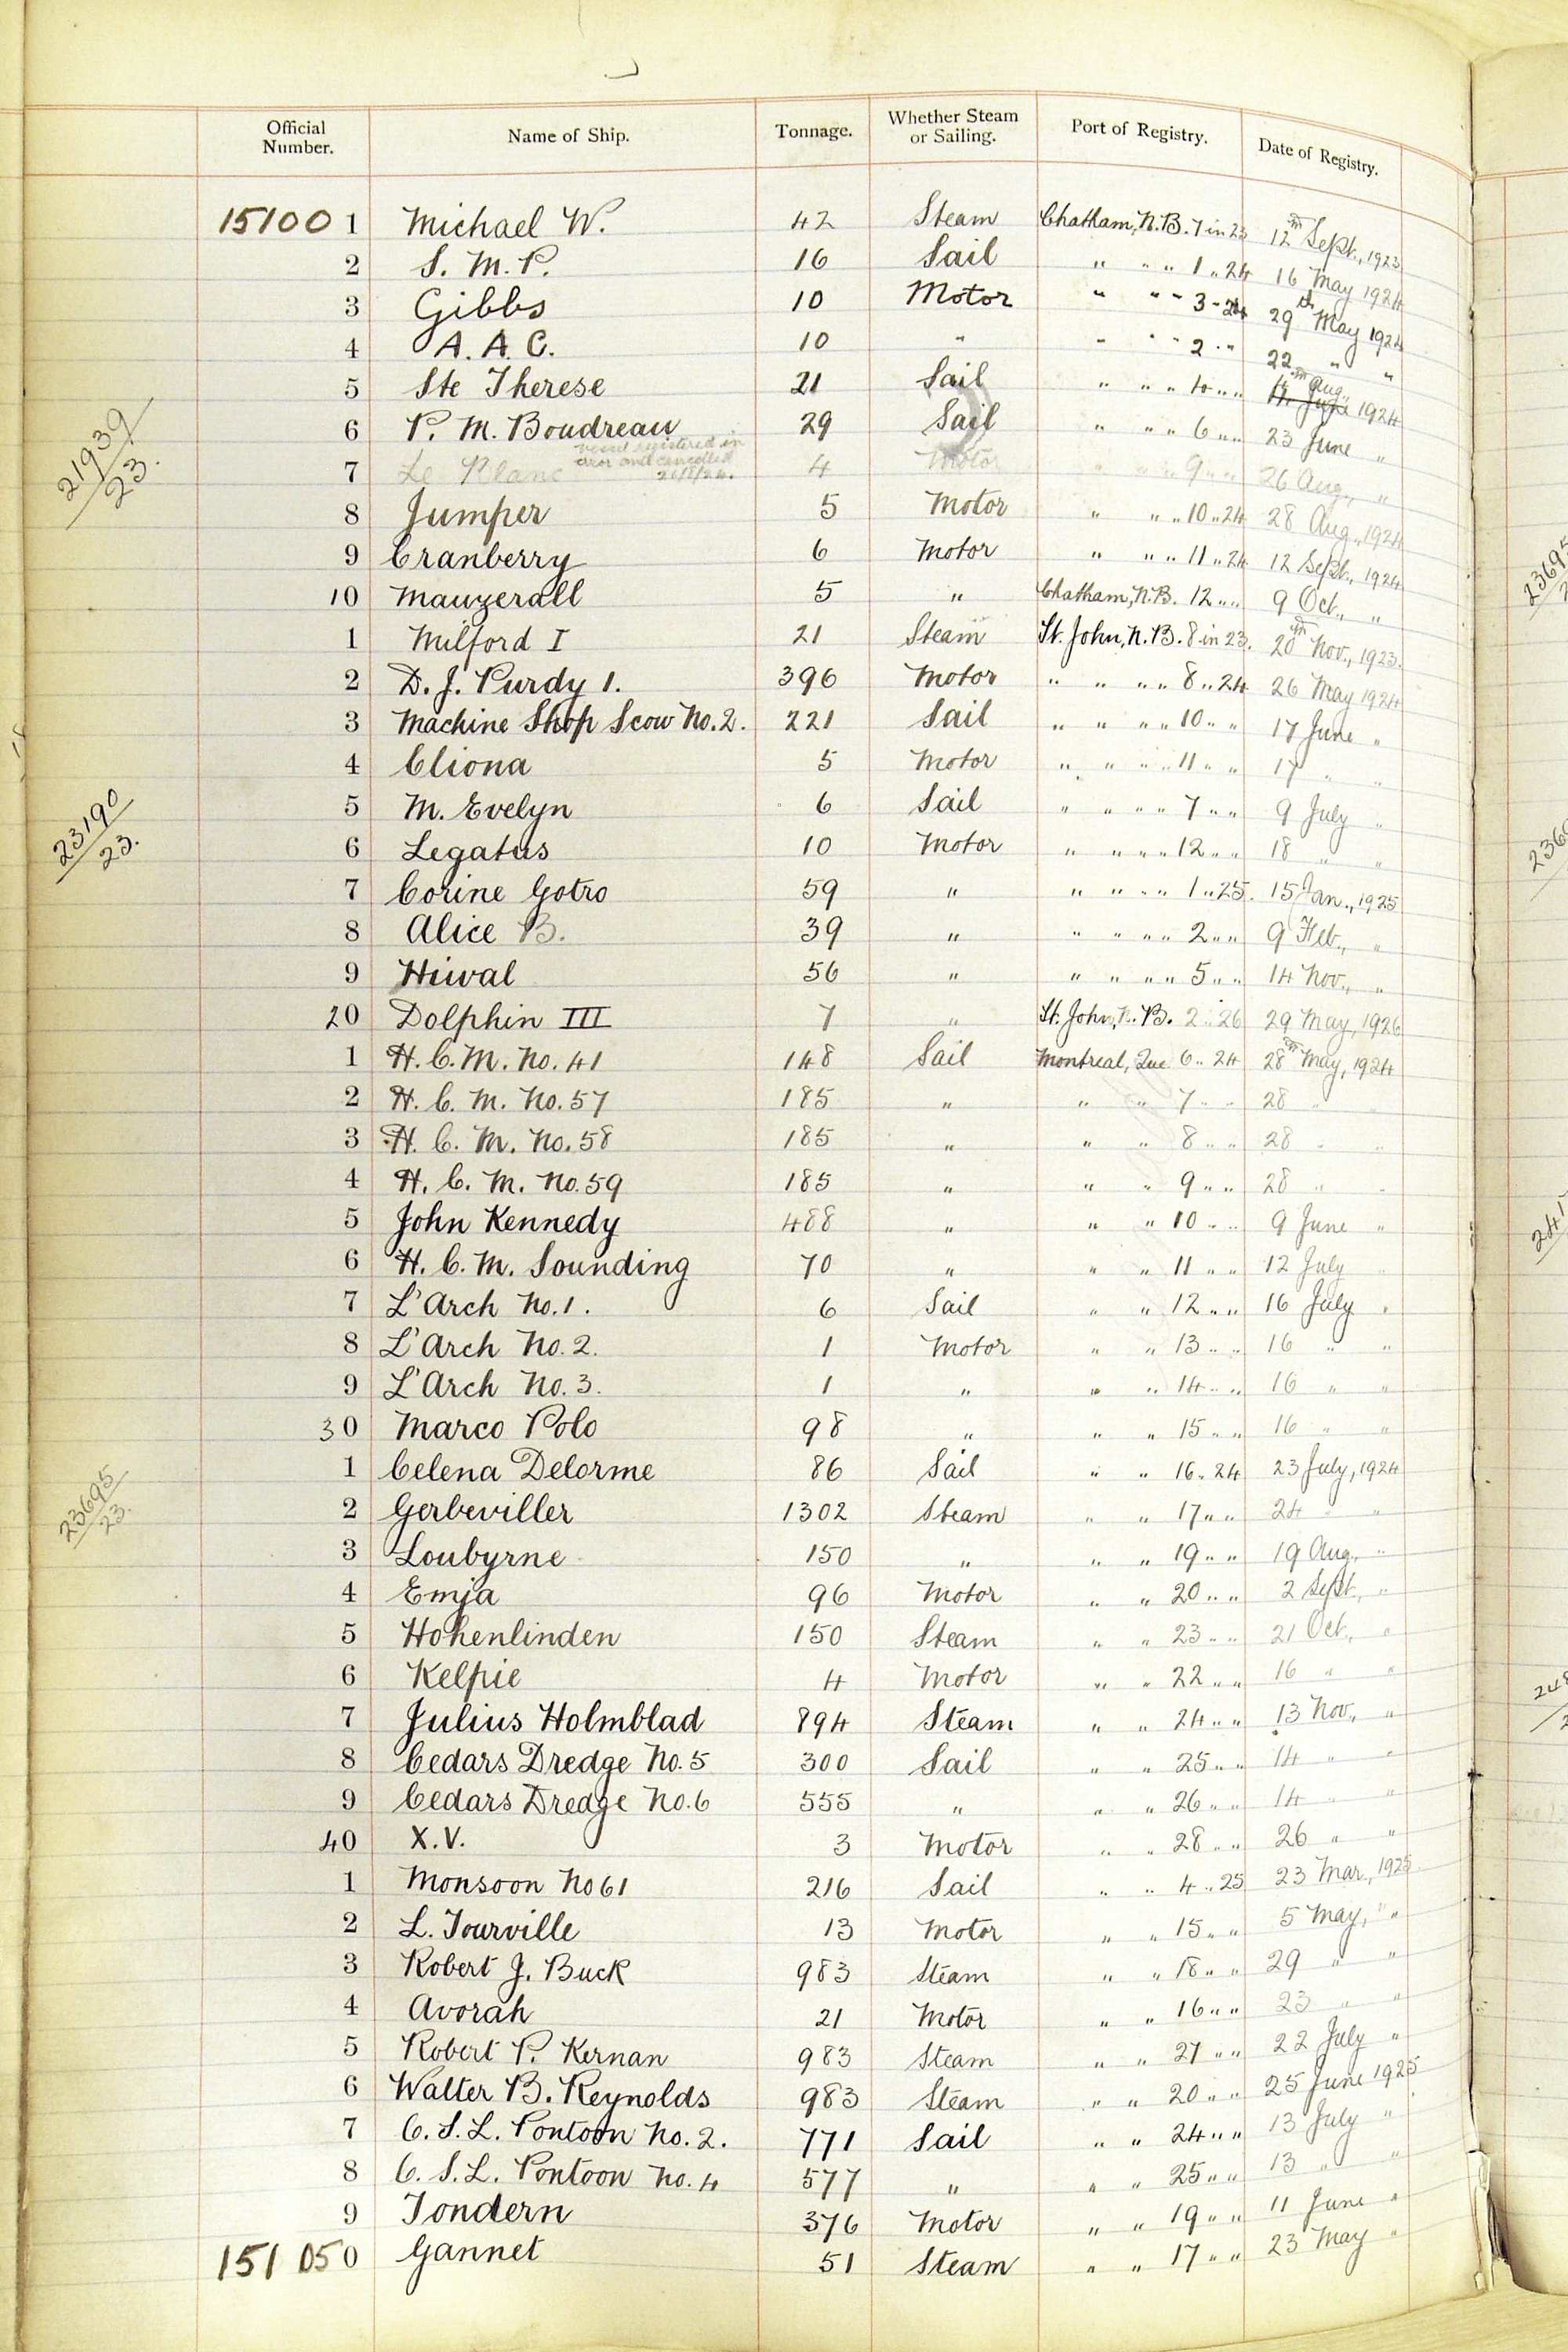 Official Number. Name of Ship. Tonnage. Whether Steam or Sailing. Port of Registry. Date of Registry.
151001 Michael W. 42 Steam Chatham, N.B. 7 in 23 12th Sept., 1923
2 S. M. P. 16 Sail " " " 1 " 24 16 May 1924
3 Gibbs 10 Motor " " " 3 " 24 29th May 1924
4 A. A. C. 10 " " " " 2 " " 22 " "
5 Ste Therese 21 Sail " " " " " Aug. 1924
6 P. M. Boudreau 29 Sail " " " 6 " " 23 June "
21939/23.
7 Le Blanc vessel registered in error and cancelled 26/8/24. 4 Motor " " " 9 " " 26 Aug., "
8 Jumper 5 Motor " " " 10 " 24 28 Aug., 1924
9 Cranberry 6 Motor " " " 11 " 24 12 Sept., 1924
10 Mauzerall 5 " Chatham, N.B. 12 " " 9 Oct., "
1 Milford I 21 Steam St. John, N.B. 8 in 23. 20th Nov., 1923.
2 D. J. Purdy 1. 396 Motor " " " " 8 " 24 26 May 1924
3 Machine Shop Scow No. 2. 221 Sail " " " " 10 " " 17 June "
4 Cliona 5 Motor " " " " 11 " " 17 " "
5 M. Evelyn 6 Sail " " " " 7 " " 9 July "
23190/23.
6 Legatus 10 Motor " " " " 12 " " 18 " "
7 Corine Gotro 59 " " " " " 1 " 25. 15 Jan., 1925
8 Alice B. 39 " " " " " 2 " " 9 Feb., "
9 Hiwal 56 " " " " " 5 " " 14 Nov., "
20 Dolphin III 7 " St. John, N.B. 2 " 26 29 May, 1926
1 H. C. M. No. 41 148 Sail Montreal, Que 6 " 24 28th May, 1924
2 H. C. M. No. 57 185 " " " 7 " " 28 " "
3 H. C. M. No. 58 185 " " " 8 " " 28 " "
4 H. C. M. No. 59 185 " " " 9 " " 28 " "
5 John Kennedy 488 " " " 10 " " 9 June "
6 H. C. M. Sounding 70 " " " 11 " " 12 July "
7 L'Arch No. 1. 6 Sail " " 12 " " 16 July "
8 L'Arch No. 2. 1 Motor " " 13 " " 16 " "
9 L'Arch No. 3. 1 " " " 14 " " 16 " "
30 Marco Polo 98 " " " 15 " " 16 " "
1 Celena Delorme 86 Sail " " 16 " 24 23 July, 1924
2 Gerbeviller 1302 Steam " " 17 " " 24 " "
23695/23.
3 Loubyrne 150 " " " 19 " " 19 Aug., "
4 Emja 96 Motor " " 20 " " 2 Sept., "
5 Hohenlinden 150 Steam " " 23 " " 21 Oct., "
6 Kelpie 4 Motor " " 22 " " 16 " "
7 Julius Holmblad 894 Steam " " 24 " " 13 Nov., "
8 Cedars Dredge No. 5 300 Sail " " 25 " " 14 " "
9 Cedars Dredge No. 6 555 " " " 26 " " 14 " "
40 X.V. 3 Motor " " 28 " " 26 " "
1 Monsoon No 61 216 Sail " " 4 " 25 23 Mar., 1925
2 L. Tourville 13 Motor " " 15 " " 5 May, " "
3 Robert J. Buck 983 Steam " " 18 " " 29 " "
4 Avorah 21 Motor " " 16 " " 23 " "
5 Robert P. Kernan 983 Steam " " 27 " " 22 July "
6 Walter B. Reynolds 983 Steam " " 20 " " 25 June 1925
7 C. S. L. Pontoon No. 2. 771 Sail " " 24 " " 13 July "
8 C. S. L. Pontoon No. 4 577 " " " 25 " " 13 " "
9 Tondern 376 Motor " " 19 " " 11 June "
151050 Gannet 51 Steam " " 17 " " 23 May "